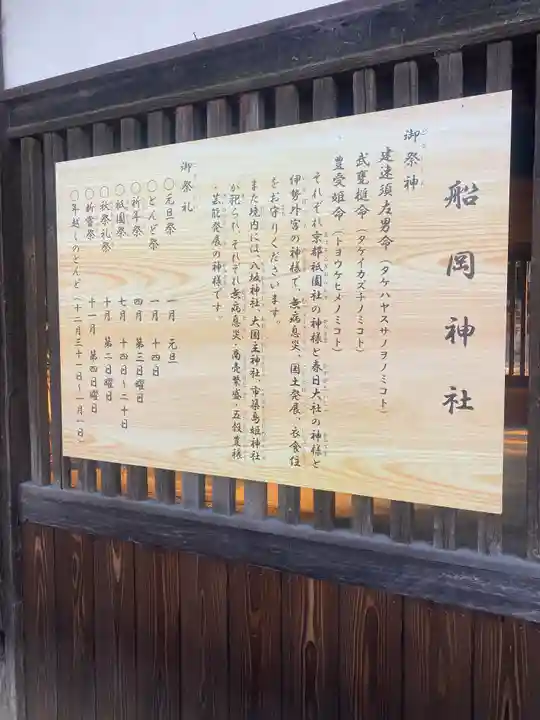 船岡神社
御祭神
建速須左男命(タケハヤスサノヲノミコト)
武甕槌命(タケイカズチノミコト)
豊受姫命(トヨウケヒメノミコト)
それぞれ京都祇園社の神様と春日大社の神様と
伊勢外宮の神様で、無病息災、国土発展、衣食住
をお守りくださいます。
また境内には、八坂神社、大国主神社、市築島姫神社
が祀られ、それぞれ無病息災・商売繁盛・五穀豊穣
・芸能発展の神様です。
御祭礼
〇元旦祭 一月 元旦
〇とんど祭 一月 十四日
〇祈年祭 四月 第三日曜日
〇祇園祭 七月 十四日~二十日
〇秋祭礼祭 十月 第二日曜日
〇新嘗祭 十一月 第四日曜日
〇年越しのとんど(十二月三十一日~一月一日)